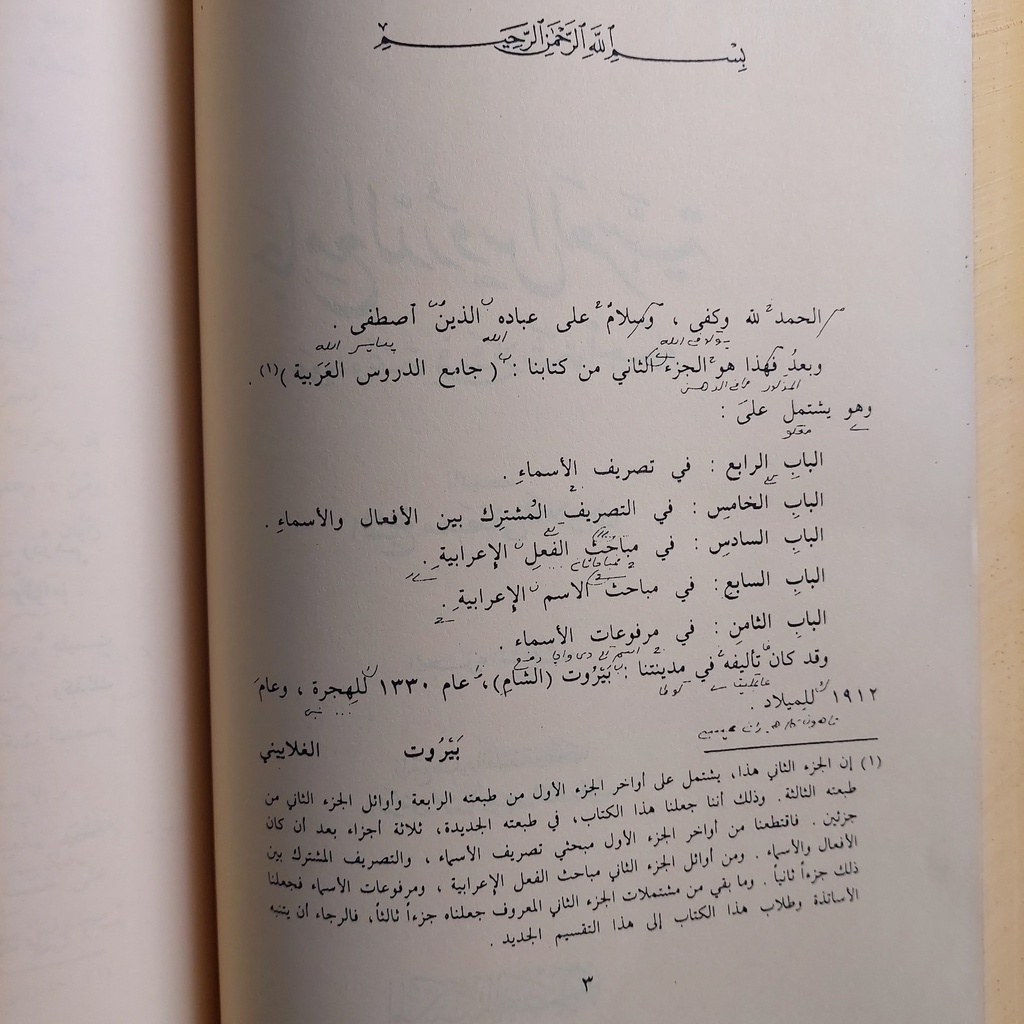 بِسْمِ ٱللَّهِ ٱلرَّحْمَٰنِ ٱلرَّحِيمِ
الحمد لله وكفى ، وسلامٌ على عباده الذين أصطفى .
وبعدُ فهذا هو الجزء الثاني من كتابنا : ( جامع الدروس العَرَبية )(١) .
وهو يشتمل على :
البابِ الرابع : في تصريف الأسماءِ .
البابِ الخامسِ : في التصريف المُشترِك بين الأفعال والأسماءِ .
البابِ السادسِ : في مباحث الفعلِ الإعرابيةِ .
البابِ السابعِ : في مباحث الاسم الإعرابيةِ .
البابِ الثامنِ : في مرفوعات الأسماء .
وقد كان تأليفه في مدينتنا : بَيْرُوت (الشامِ)، عام ١٣٣٠ للهِجرة ، وعامَ
١٩١٢ للميلاد .
بَيْرُوت الغلاييني
(١) إن الجزء الثاني هذا، يشتمل على أواخر الجزء الأول من طبعته الرابعة وأوائل الجزء الثاني من
طبعته الثالثة . وذلك أننا جعلنا هذا الكتاب، في طبعته الجديدة، ثلاثة أجزاء بعد أن كان
جزئين . فاقتطعنا من أواخر الجزء الأول مبحثي تصريف الأسماء ، والتصريف المشترك بين
الأفعال والأسماء . ومن أوائل الجزء الثاني مباحث الفعل الإعرابية ، ومرفوعات الأسماء فجعلنا
ذلك جزءاً ثانياً . وما بقي من مشتملات الجزء الثاني المعروف جعلناه جزءاً ثالثاً، فالرجاء أن يتنبه
الأساتذة وطلاب هذا الكتاب إلى هذا التقسيم الجديد .
٣